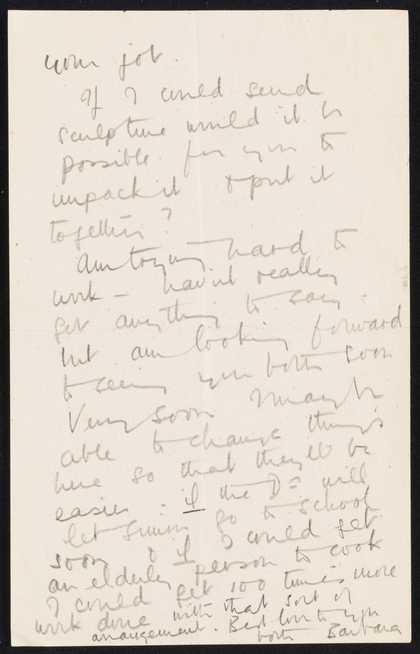 your job.
If I could send
sculpture would it be
possible for you to
unpack it & put it
together?
Am trying hard to
work – havnt really
got anything to say –
but am looking forward
to seeing you both soon
Very soon I may be
able to change things
here so that they'll be
easier – if the Dr will
let Simon go to school
soon & if I could get
an elderly person to cook
I could get 100 times more
work done with that sort of
arrangement. Best love to you
both Barbara